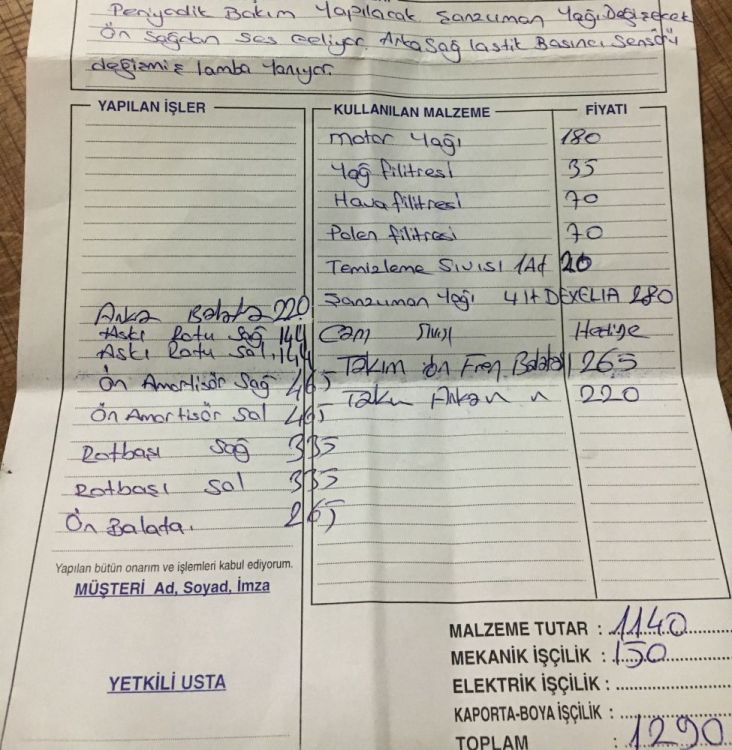 Periyodik Bakım Yapılacak. Şanzuman Yağı Değişecek
Ön Sağdan Ses Geliyor. Arka Sağ lastik Basıncı Sensörü
değişmiş lamba Yanıyor.
YAPILAN İŞLER
Arka Balata 220
Askı Rotu Sağ 144
Askı Rotu Sol 144
Ön Amortisör Sağ 465
Ön Amortisör Sol 465
Rotbaşı Sağ 335
Rotbaşı Sol 335
Ön Balata 265
Yapılan bütün onarım ve işlemleri kabul ediyorum.
MÜŞTERİ Ad, Soyad, İmza
YETKİLİ USTA
KULLANILAN MALZEME FİYATI
Motor Yağı 180
Yağ filitresi 35
Hava filitresi 70
Polen filitresi 70
Temizleme Sıvısı 1Ad 20
Şanzuman Yağı 4 lt DEXELIA 280
Cam Sıvısı Hediye
Takım Ön Fren Balatası 265
Takım Arka " 220
MALZEME TUTAR : 1140
MEKANİK İŞÇİLİK : 150
ELEKTRİK İŞÇİLİK :
KAPORTA-BOYA İŞÇİLİK :
TOPLAM : 1290